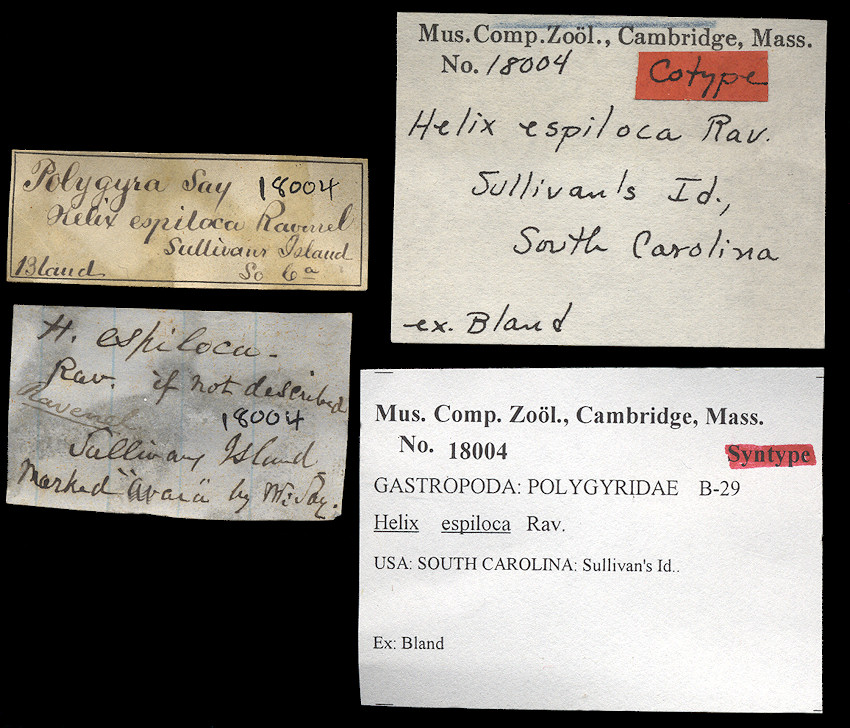 Polygyra Say 18004
Helix espiloca Ravenel
Sullivans Island
Bland So Ca
H. espiloca.
Rav. if not described
Ravenel
18004
Sullivans Island
Marked "avara" by Mr. Say.
Mus. Comp. Zoöl., Cambridge, Mass.
No. 18004 Cotype
Helix espiloca Rav.
Sullivan's Id.,
South Carolina
ex. Bland
Mus. Comp. Zoöl., Cambridge, Mass.
No. 18004
Syntype
GASTROPODA: POLYGYRIDAE B-29
Helix espiloca Rav.
USA: SOUTH CAROLINA: Sullivan's Id..
Ex: Bland